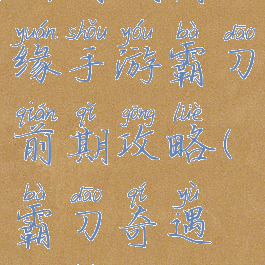 yuán shǒu yóu bà dāo
缘手游霸刀
qián qī gōng lüè
前期攻略(
bà dāo qí yù
霸刀奇遇